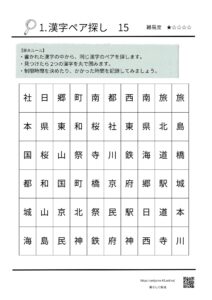 1.漢字ペア探し 15
難易度 ★☆☆☆☆
・書かれた漢字の中から、同じ漢字のペアを探します。
・見つけたら2つの漢字を丸で囲みます。
・制限時間を決めたり、かかった時間を記録してみましょう。
社 日 郷 町 南 都 西 南 旅 旅
本 県 東 和 桜 社 東 県 北 島
国 桜 山 祭 寺 川 鉄 海 道 橋
都 和 国 町 橋 京 府 郷 駅 城
城 山 京 北 祭 民 駅 日 道 本
海 島 民 神 鉄 府 神 西 寺 川